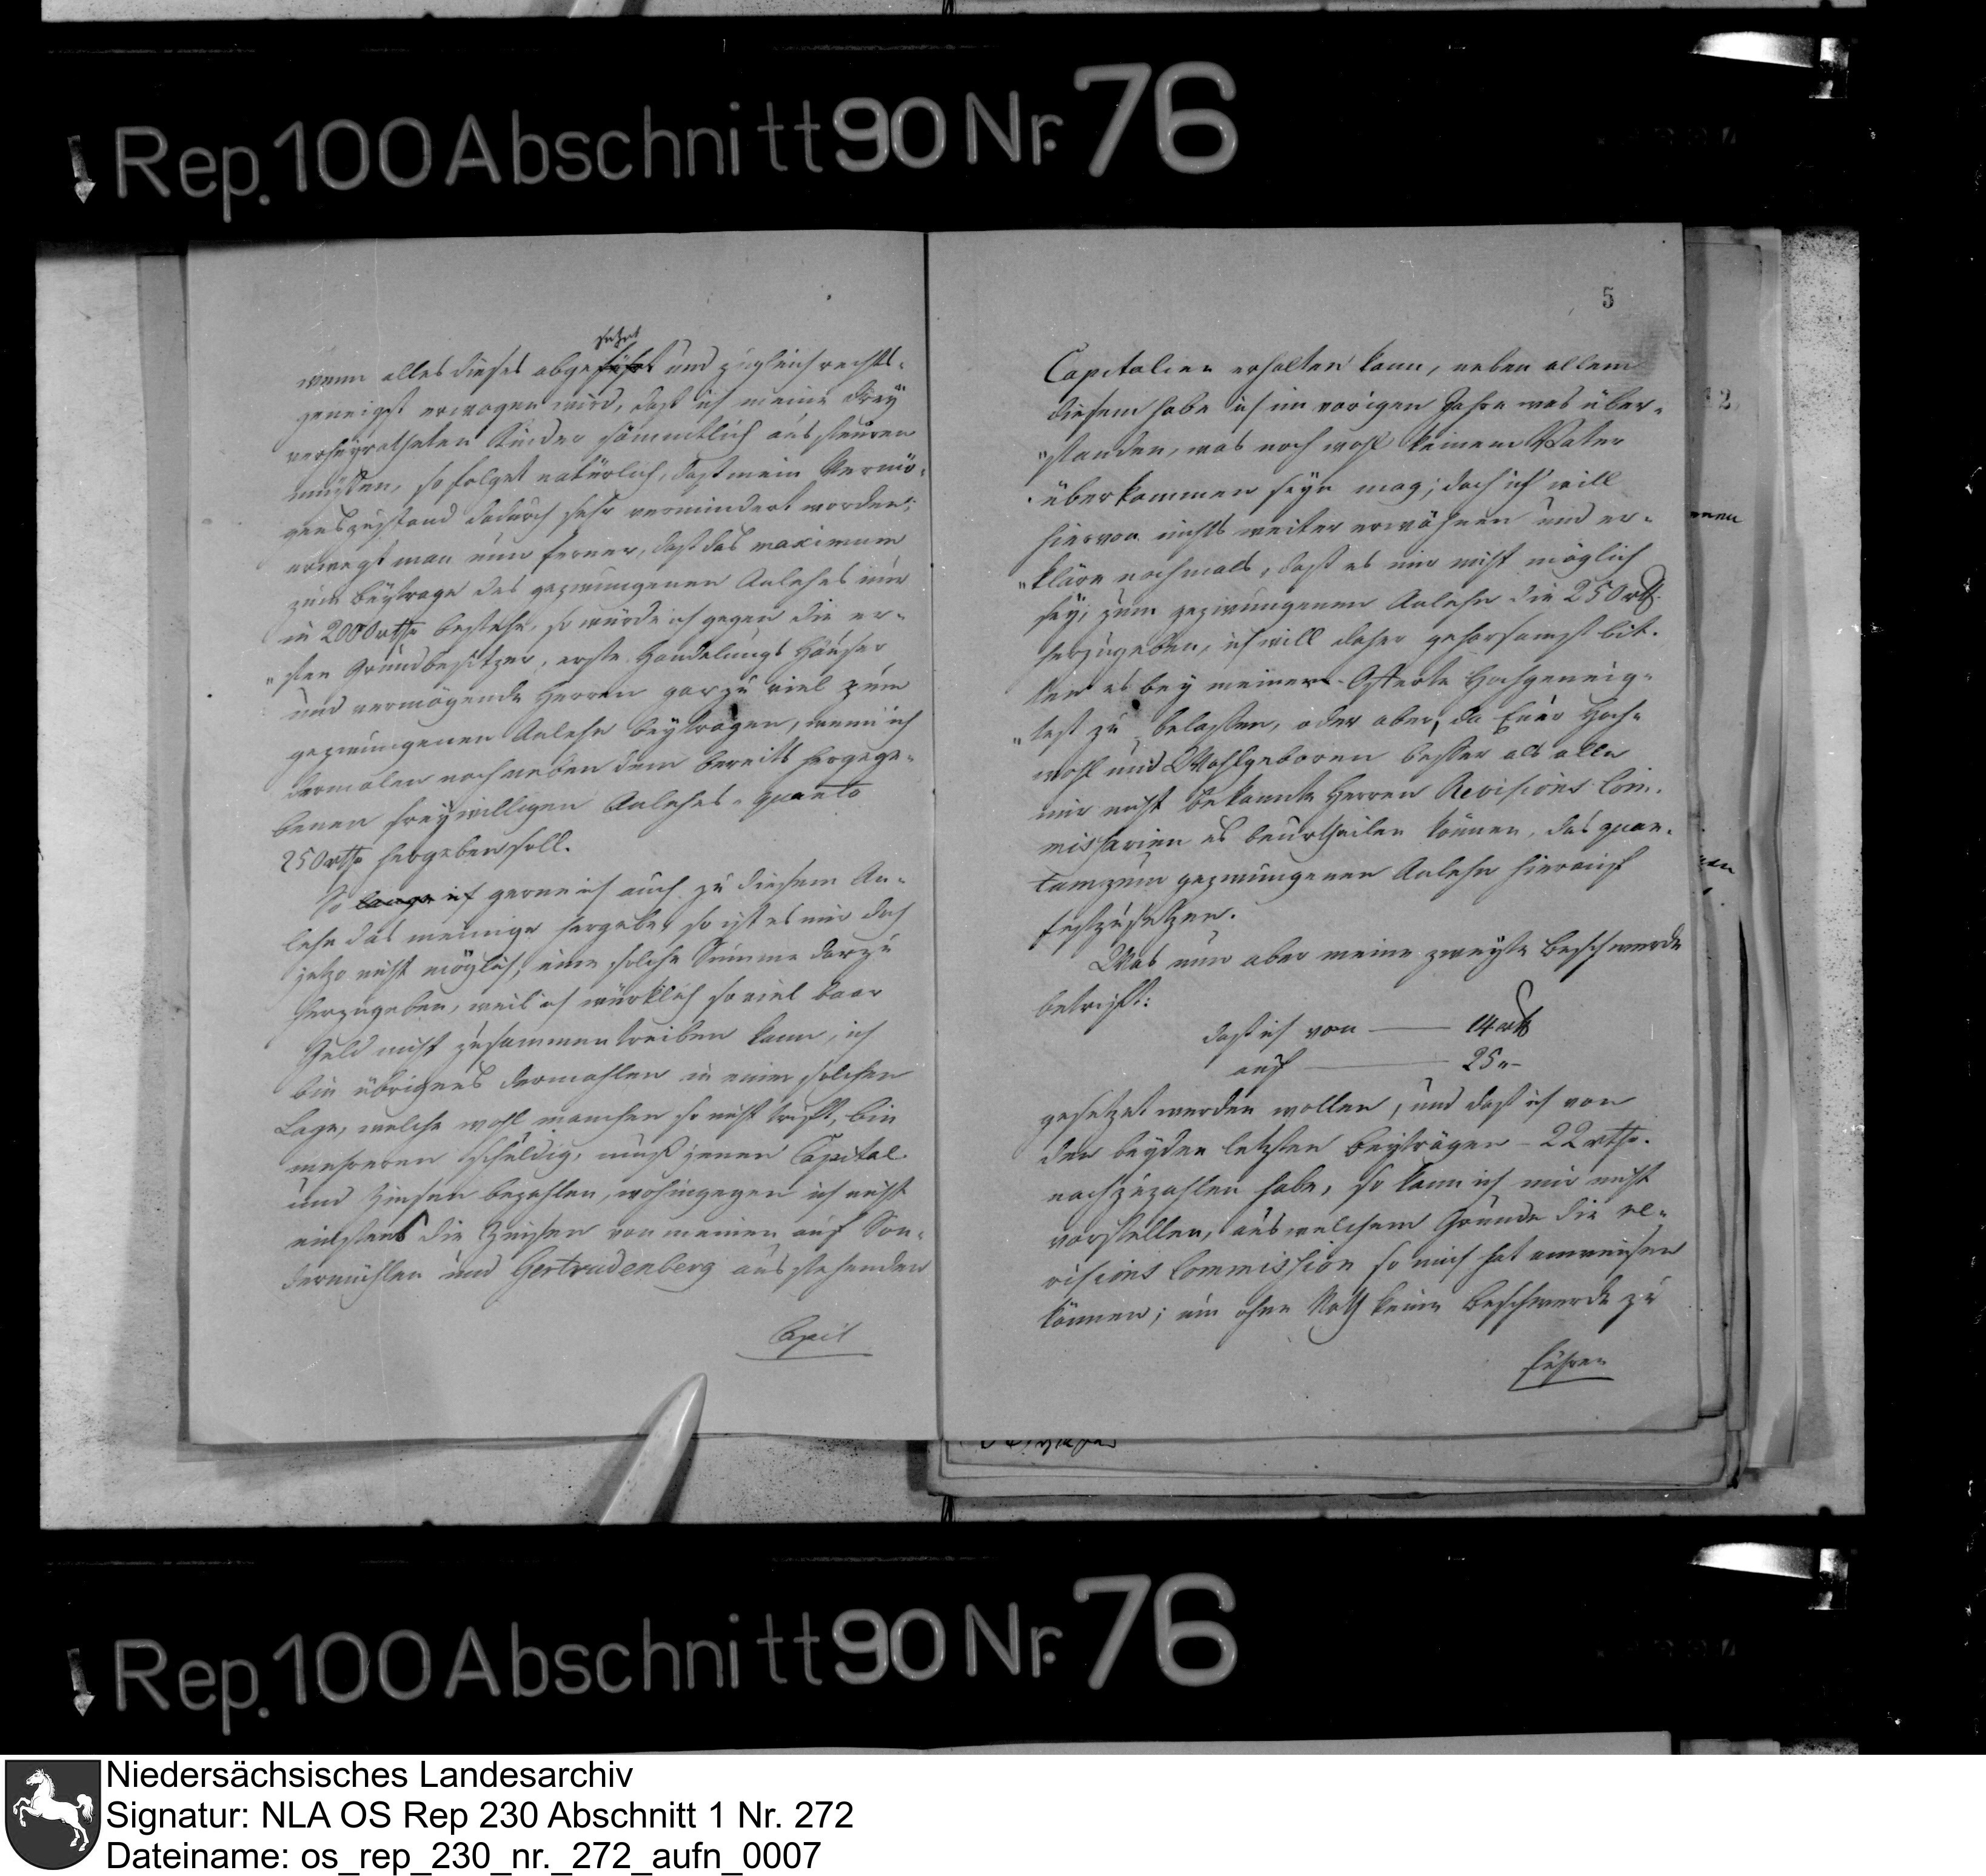 Rep. 100 Abschnitt 90 Nr. 76
wenn alles dieses abge und zugleich rechts-
geneigst erwogen wird, daß ich meine drey
verheyratheten Kinder sämmtlich aussteuren
müssen, so folget natürlich, daß mein Vermö-
genszustand dadurch sehr vermindert worden;
erwegt man nun ferner, daß das maximum
zum Beytrage des gezwungenen Anlehns nur
in 2000 rthr bestehe, so würde ich gegen die er-
"sten Grundbesitzer, erste Handelungs Häuser
und vermögende Herren gar zu viel zum
gezwungenen Anlehn beytragen, wenn ich
dermalen noch neben dem bereits hergege-
benen freywilligen Anlehns-quanto
250 rthr hergeben soll.
So gerne ich auch zu diesem An-
lehn das meinige hergebe, so ist es mir doch
jetzo nicht möglich, eine solche Summe darzu
herzugeben, weil ich würklich so viel baar
Geld nicht zusammentreiben kann, ich
bin übrigens dermahlen in einer solchen
Lage, welche wohl manchen so nicht trift, bin
mehreren schuldig, muß jenen Capital
und Zinsen bezahlen, wohingegen ich nicht
einstens die Zinsen von meinen auf Son-
dermühlen und Gertrudenberg ausstehenden
Capit
5
Capitalien erhalten kann, neben allem
diesem habe ich im vorigen Jahre was über-
"standen, was noch wohl keinem Vater
überkommen seyn mag; doch ich will
hiervon nichts weiter erwähnen und er-
"kläre nochmals, daß es mir nicht möglich
sey, zum gezwungenen Anlehn die 250 rth
herzugeben, ich will daher gehorsamst bit-
ten es bey meiner Offerte Hochgeneig-
"test zu belassen, oder aber, da Euer Hoch-
wohl und Wohlgeboren besser als alle
mir nicht bekannte Herren Revisions Com-
missarien es beurtheilen können, das quan-
tum zum gezwungenen Anlehn hierauf
festzusetzen.
Was nun aber meine zweyte Beschwerde
betrift:
daß ich von — 14 rth
auf — 25 "-
gesetzet werden wollen, und daß ich von
den beyden letzten Beyträgen - 22 rthr.
nachzuzahlen habe, so kann ich mir nicht
vorstellen, aus welchem Grunde die Re-
visions Commission so mich hat anweisen
können; um ohne Noth keine Beschwerde zu
führen
Rep. 100 Abschnitt 90 Nr. 76
Niedersächsisches Landesarchiv
Signatur: NLA OS Rep 230 Abschnitt 1 Nr. 272
Dateiname: os_rep_230_nr._272_aufn_0007